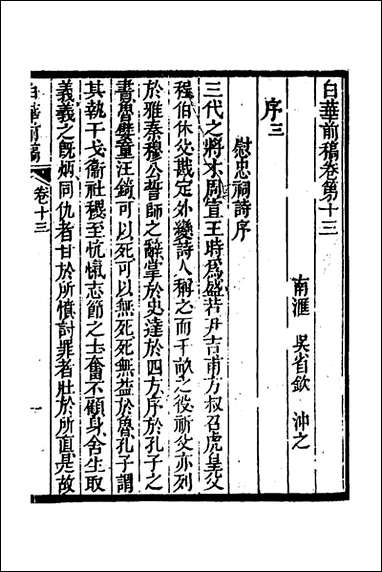 白華前稿卷第十三
南滙 吳省欽 沖之
序三
慰忠祠詩序
三代之將才周宣王時爲盛若尹吉甫方叔召虎皇父
程伯休父戡定外變詩人稱之而千畝之役祈父亦列
於雅秦穆公誓師之辭掌於史達於四方序於孔子之
書魯嬖童汪錡可以死可以無死死無益於魯孔子謂
其執干戈衞社稷至忼愾志節之士奮不顧身舍生取
義義之旣炳同仇者甘於所憤討罪者壯於所直是故
白華前稿
卷十三
一